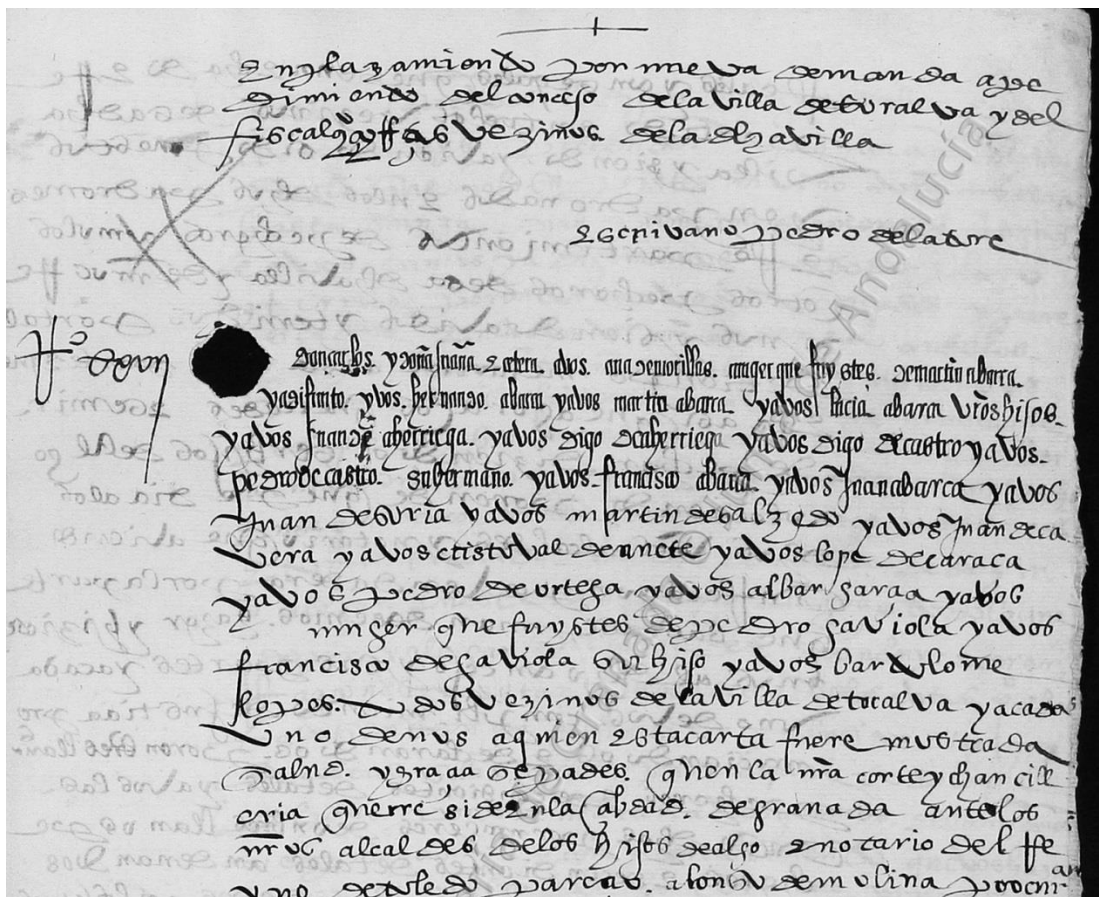 enplazamiento por nueva demanda a pe
dimiento del conçejo de la villa de toralva y del
fiscal vezinos de la dha villa
escrivano pedro de latorre
don carlos. y doña juana etcetera. a vos. ana de morillas. muger que fuystes. de martin abarca.
ya difunto. y vos. hernando. abarca y a vos martin abarca. y a vos luçia abarca vros hijos.
y a vos de aberriega. y a vos digo de aberriega y a vos digo de castro y a vos.
pedro de castro. su hermano. y a vos francisco abarca. y a vos juan abarca y a vos
juan de soria y a vos martin de salzedo y a vos juan de ca
vera y a vos cristoval de y a vos lope de caraca
y a vos pedro de ortega y a vos albar garcia y a vos
muger que fuystes de pedro gaviola y a vos
francisco de gaviola su hijo y a vos bartolome
lopes. todos vezinos de la villa de toralva y a cada
uno de vos a quien esta carta fuere mostrada
salud. y graçia sepades. que en la nra corte y chancill
eria que rreside en la çibdad. de granada ante los
nros alcaldes de los hijos dealgo e notario del rre
yno de toledo pareçio. alonso de molina procur